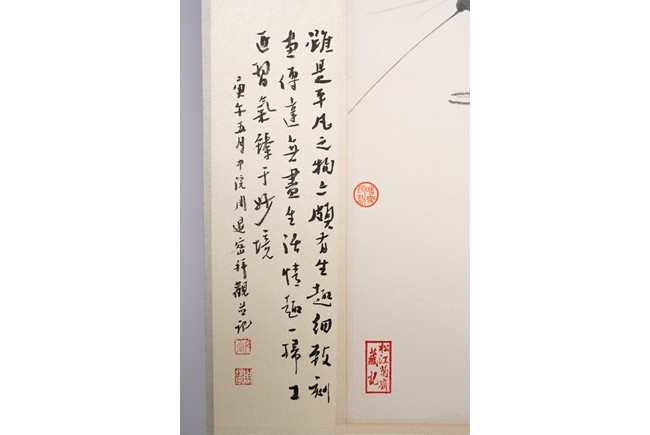 雖是平凡之物亦頗有生趣細致刻
畫傳達無盡生活情趣一掃工
匠習氣臻于妙境
庚午五月中浣周退密拜觀并記
松江菊齋
藏記